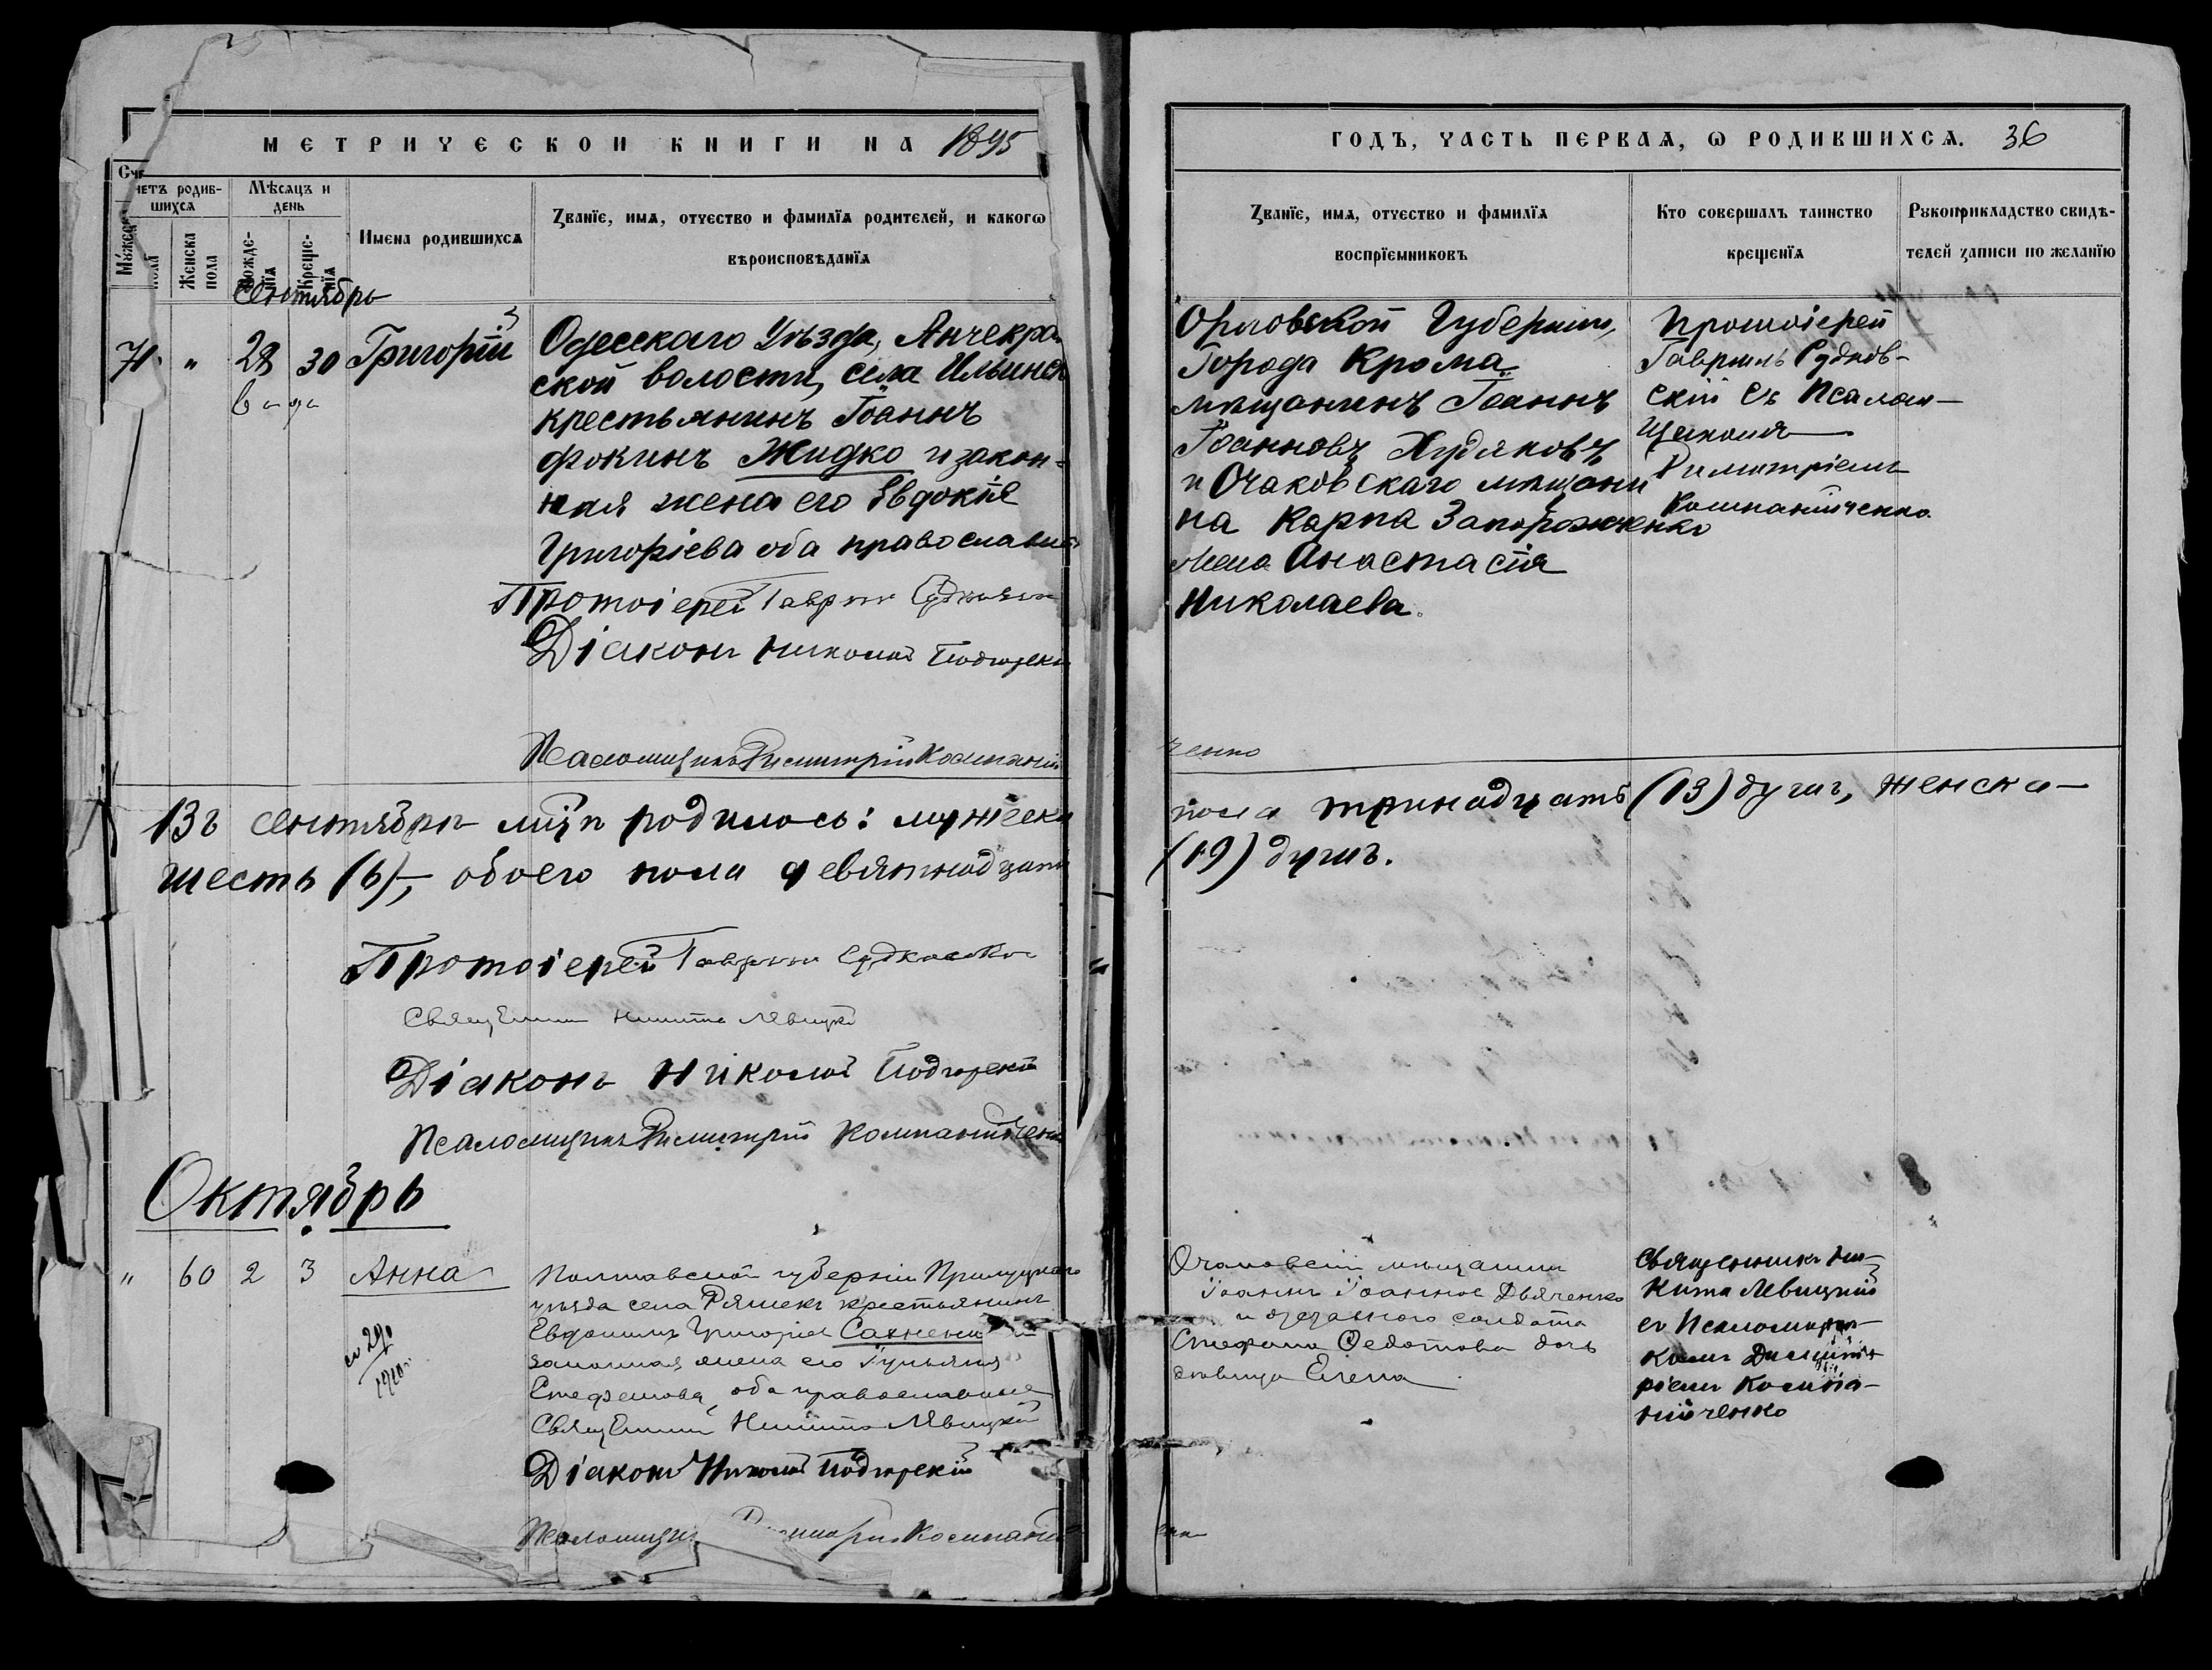 МЕТРИЧЕСКОИ КНИГИ НА 1895
Счетъ родив-
шихся
Мужеска пола
Женска пола
Мѣсяцъ и
день
Рожде-
нія
Креще-
нія
Имена родившихся
Званіе, имя, отчество и фамилія родителей, и какогѡ
вѣроисповѣданія
Сентябрь
71 " 28 30 Григорій
Одесскаго Уѣзда, Анчекра
ской волости, села Ильинск
крестьянинъ Іоаннъ
Фокинъ Жидко и закон-
ная жена его Евдокія
Григоріева оба православн
Протоіерей Гавріилъ Судковскі
Діаконъ Николай Подгорскі
Псаломщикъ Димитрій Компаній
Въ Сентябрѣ мцѣ родилось: мужеска
шесть (6), обоего пола девятнадцать
Протоіерей Гавріилъ Судковскі
Священникъ Никита Левицкій
Діаконъ Николай Подгорскій
Псаломщикъ Димитрій Компанійченк
Октябрь
" 60 2 3 Анна
Полтавской губерніи Прилуцкаго
уѣзда села Ряшекъ крестьянинъ
Евдокимъ Григоріев Сахненк
законная жена его Іуліанія
Стефанова, оба православные
Священникъ Никита Левицкій
Діаконъ Николай Подгорскій
Псаломщикъ Димитрій Компаній
1910
ГОДЪ, ЧАСТЬ ПЕРВАЯ, Ѡ РОДИВШИХСЯ. 36
Званіе, имя, отчество и фамилія
воспріемниковъ
Кто совершалъ таинство
крещенія
Рукоприкладство свидѣ-
телей записи по желанію
Орловской Губерніи,
Города Крома
мѣщанинъ Іоаннъ
Іоанновъ Худяковъ
и Очаковскаго мѣщани
на Карпа Запорожченко
жена Анастасія
Николаева.
Протоіерей
Гавріилъ Судков-
скій съ Псалом-
щикомъ
Димитріемъ
Компанійченко
ченко
пола тринадцать (13) душъ, женска
(19) душъ.
Очаковскій мѣщанинъ
Іоаннъ Іоанновъ Дьяченко
и солдата
Стефана Федотова дочь
дѣвица Елена
Священникъ Ни-
кита Левицкій
съ Псаломщи-
комъ Димит-
ріемъ Компа-
нійченко